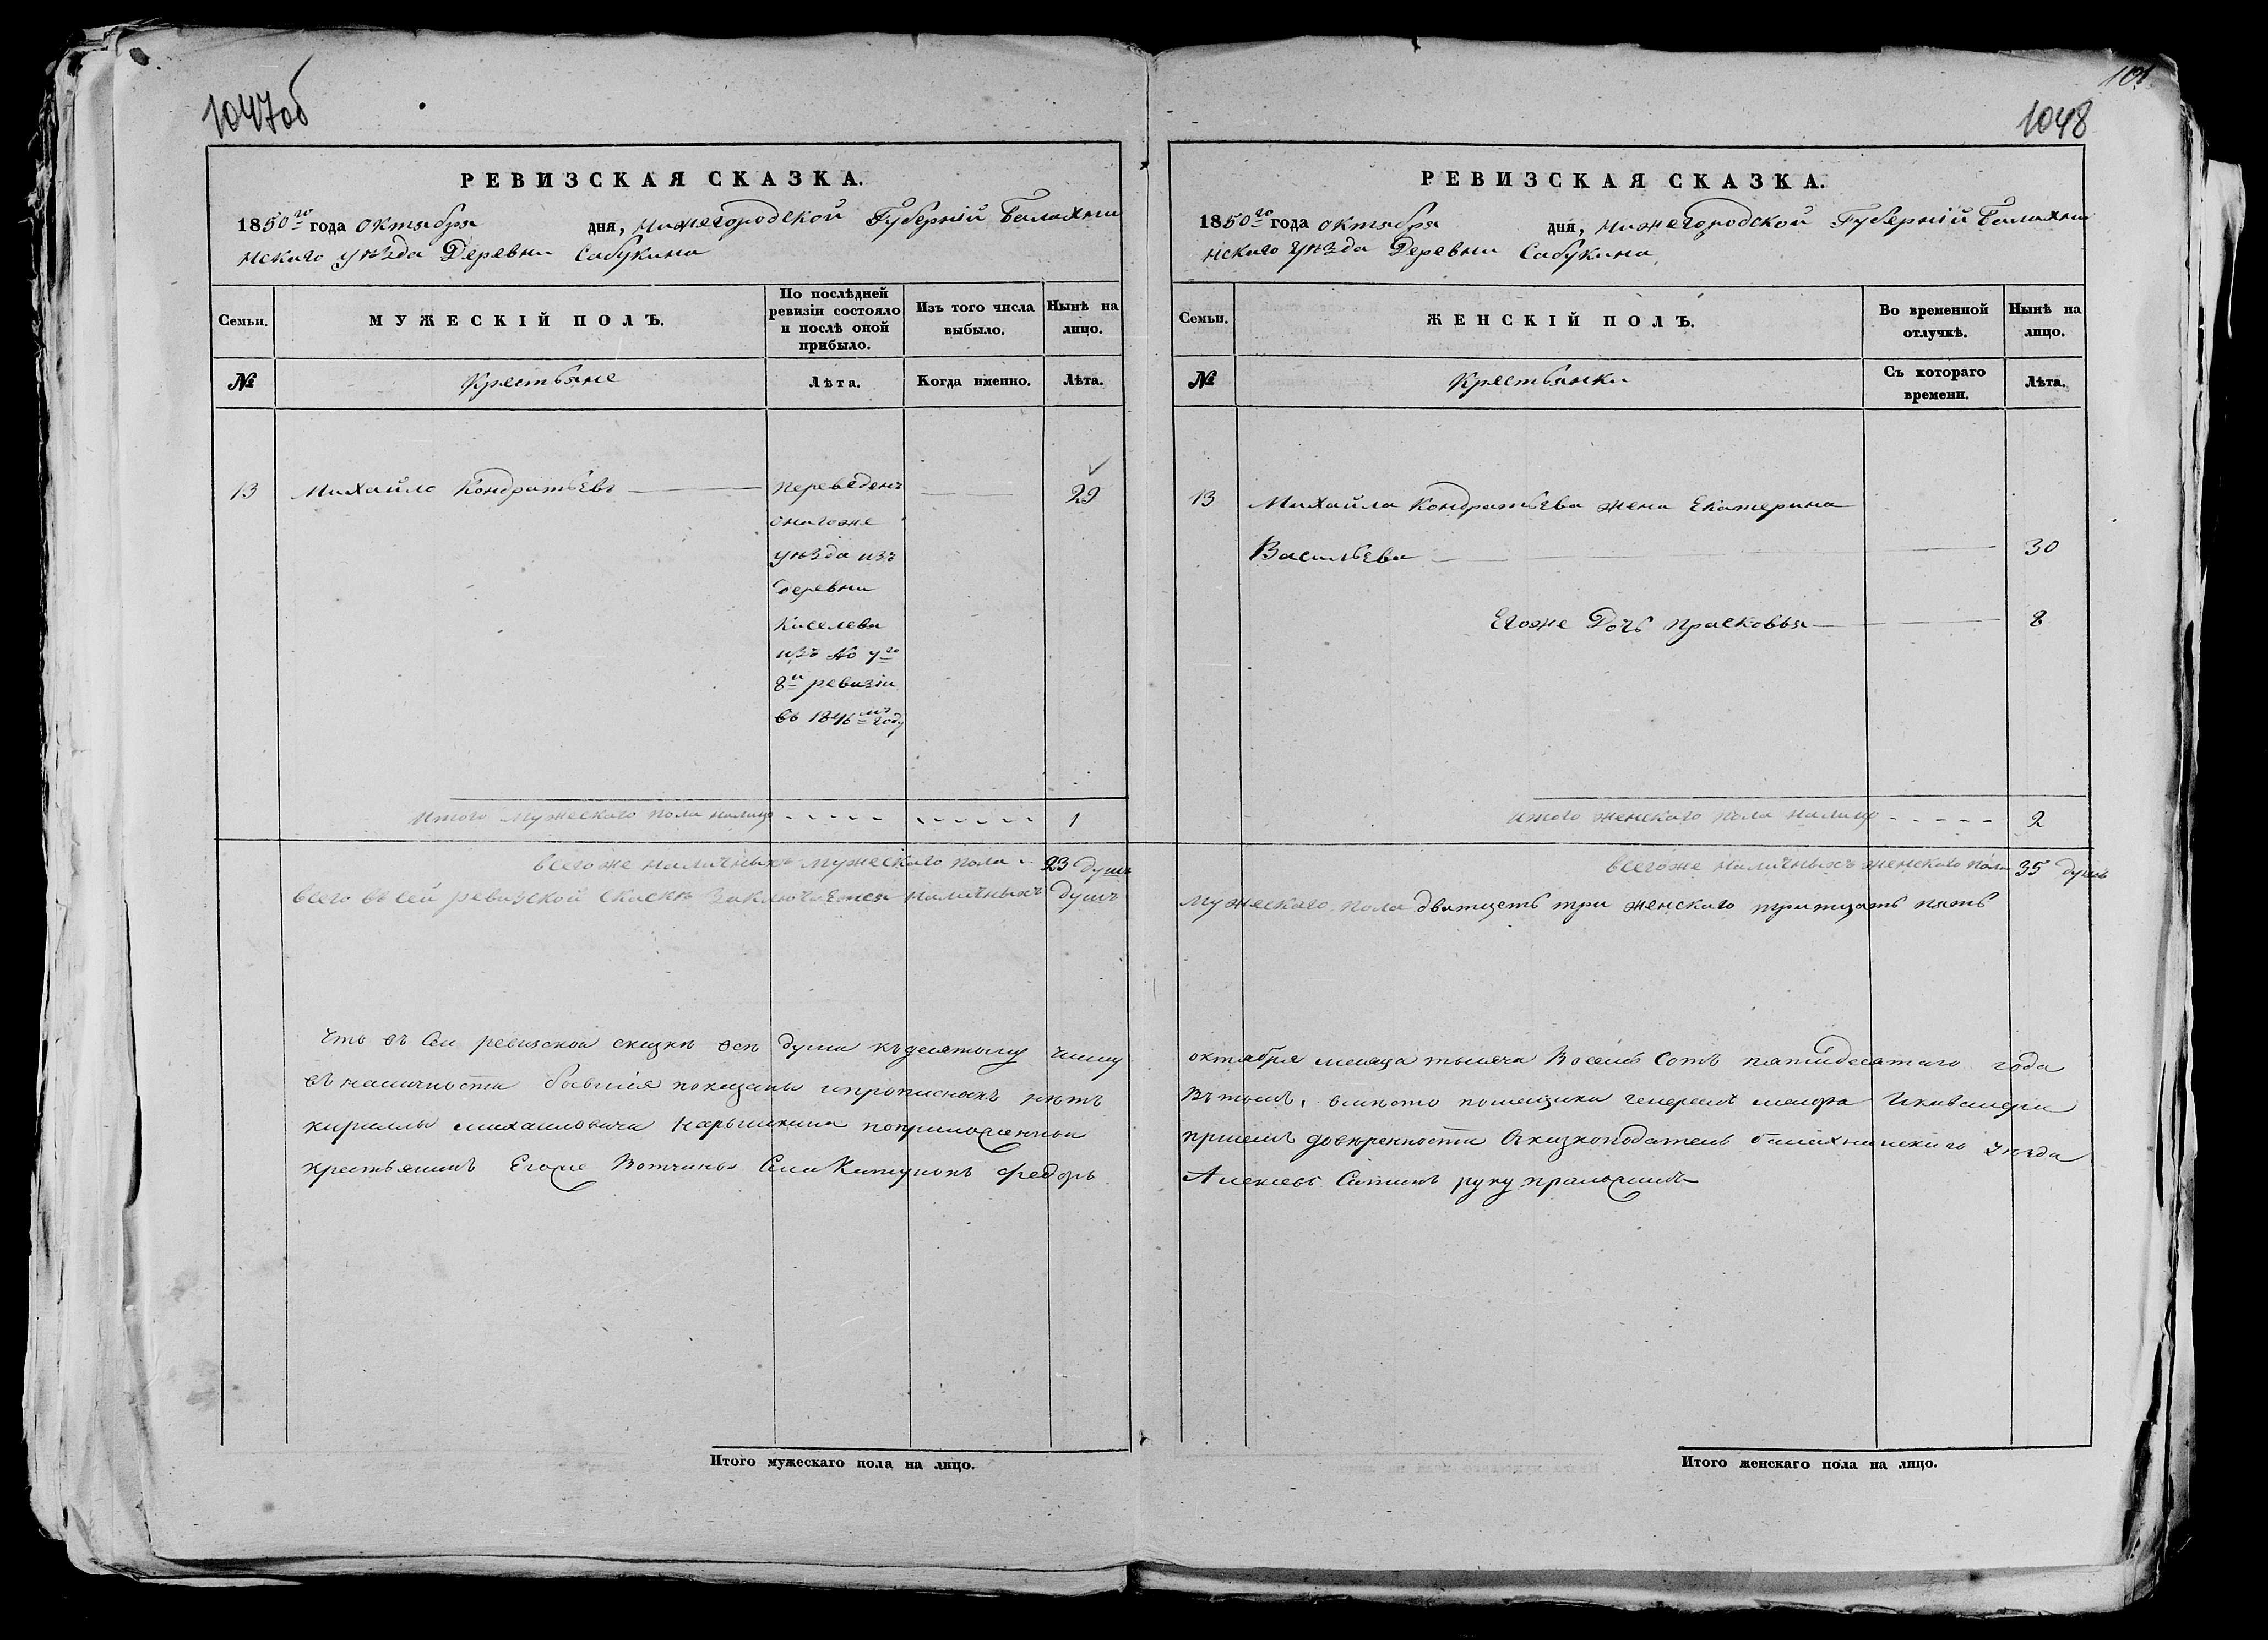 1047об
РЕВИЗСКАЯ СКАЗКА.
1850го года октября дня, Нижегородской Губерній Балахни
нскаго уѣзда Деревни Сабукина
Семьи.
МУЖЕСКІЙ ПОЛЪ.
По послѣдней ревизіи состояло и послѣ оной прибыло.
Изъ того числа выбыло.
Нынѣ на лицо.
№
Крестьяне
Лѣта.
Когда именно.
Лѣта.
13 Михайло Кондратьевъ переведенъ 29
оногоже
уѣзда изъ
деревни
Киселева
изъ No
8й ревизіи
въ 1846мъ году
итого мужескаго пола налицо 1
всегоже наличныхъ мужескаго пола 23 душъ
всего въ сей ревизской скаскѣ заключается наличныхъ душъ
Что въ сей ревизской сказкѣ всѣ души къ десятому числу
въ наличности бывшія показаны и прописныхъ нѣтъ
кириллы михаиловича Нарышкина
крестьянинъ Егоже Вотчины Села Катунокъ Федоръ
Итого мужескаго пола на лицо.
1048
РЕВИЗСКАЯ СКАЗКА.
1850го года октября дня, Нижегородской Губерній Балахни
нскаго уѣзда Деревни Сабукина
Семьи.
ЖЕНСКІЙ ПОЛЪ.
Во временной отлучкѣ.
Нынѣ на лицо.
№
Крестьянки
Съ котораго времени.
Лѣта.
13 Михайла Кондратьева жена Екатерина
Васильева 30
Егоже Дочь Прасковья 8
итого женскаго пола налицо 2
всегоже наличныхъ женскаго пола 35 душъ
мужескаго пола дватцеть три женскаго тритцать пять
октября месяца тысяча Восемь Сотъ пятидесятаго года
Въ томъ, вместо помещика генералъ маиора
уѣзда
Алексевъ руку приложилъ
Итого женскаго пола на лицо.